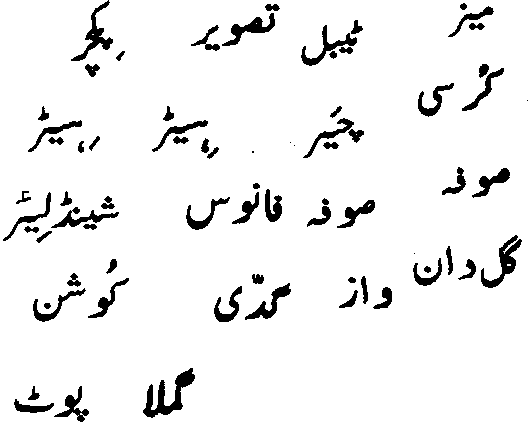 میز ٹیبل تصویر پِکچر
کُرسی چیَر ہِیٹر ہِیٹر
صوفہ صوفہ فانوس شینڈلِیَر
گل دان واز گدّی کُوشن
گملا پوٹ